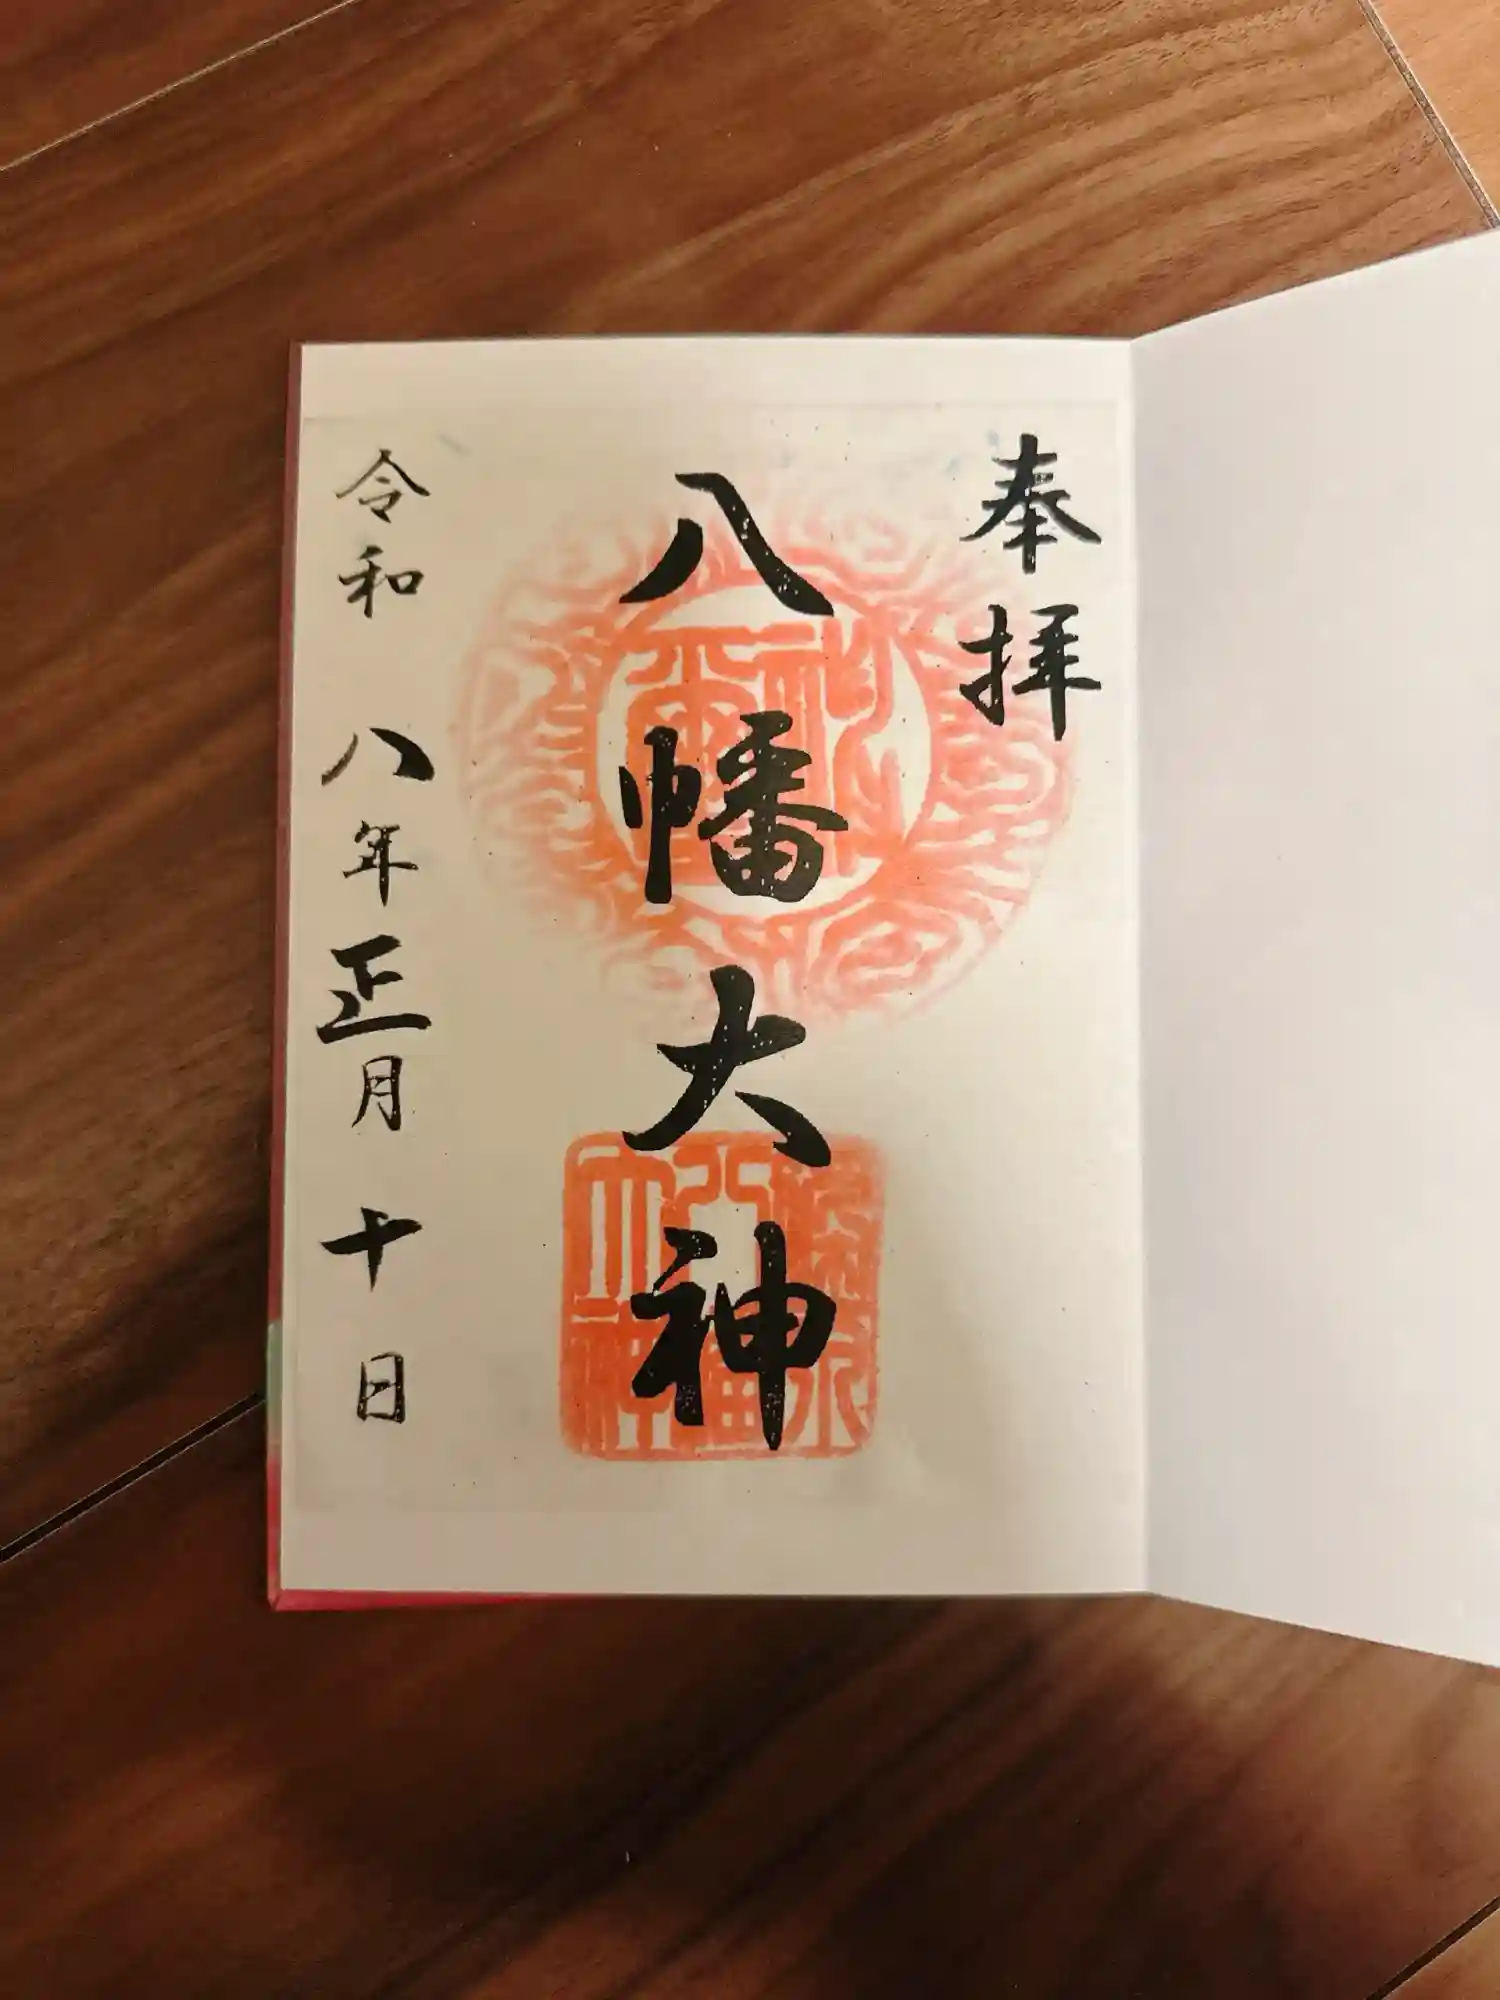 奉拝
八幡大神
令和八年正月十日